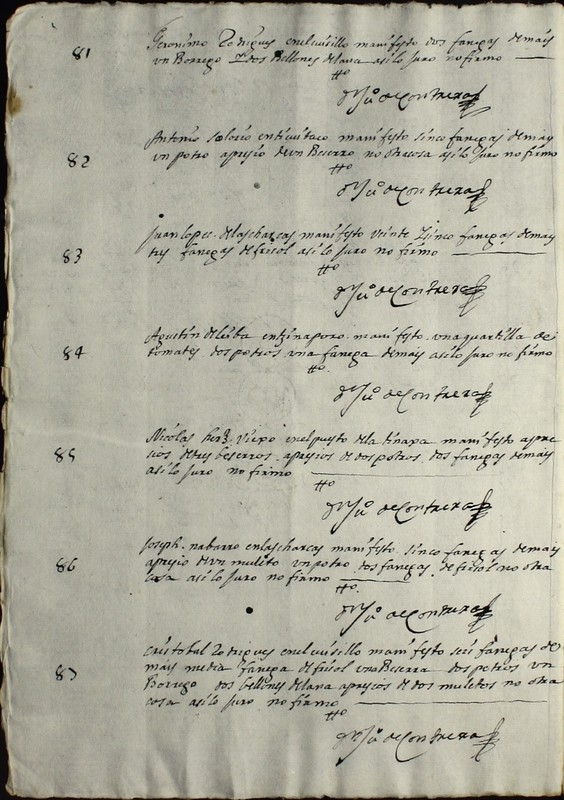 81 Geronimo Rodrigues en el cuisillo manifesto dos fanegas de mais
un Borrego y dos Bellones de lana asi lo juro no firmo
tto
Dn Ju° de Contreras
82 Antonio en manifesto sinco fanegas de mais
un potro apresio de un Beserro no otra cosa asi lo juro no firmo
tto
Dn Ju° de Contreras
83 Juan lopes de las charcas manifesto veinte y sinco fanegas de mais
tres fanegas de frisol asi lo juro no firmo
tto
Dn Ju° de Contreras
84 Agustin de leiba en manifesto una quartilla de
tomates dos potros una fanega de mais asi lo juro no firmo
tto
Dn Ju° de Contreras
85 Nicolas herz viejo en el puesto de la tinaxa manifesto apre
sios de tres beserros apresios de dos potros dos fanegas de mais
asi lo juro no firmo
tto
Dn Ju° de Contreras
86 Joseph nabarro en las charcas manifesto sinco fanegas de mais
apresio de un muleto un potro dos fanegas de frisol no otra
cosa asi lo juro no firmo
tto
Dn Ju° de Contreras
87 Cristobal Rodrigues en el cuisillo manifesto seis fanegas de
mais media fanega de frisol una Beserra dos potros un
Borrego dos bellones de lana apresios de dos muletos no otra
cosa asi lo juro no firmo
tto
Dn Ju° de Contreras